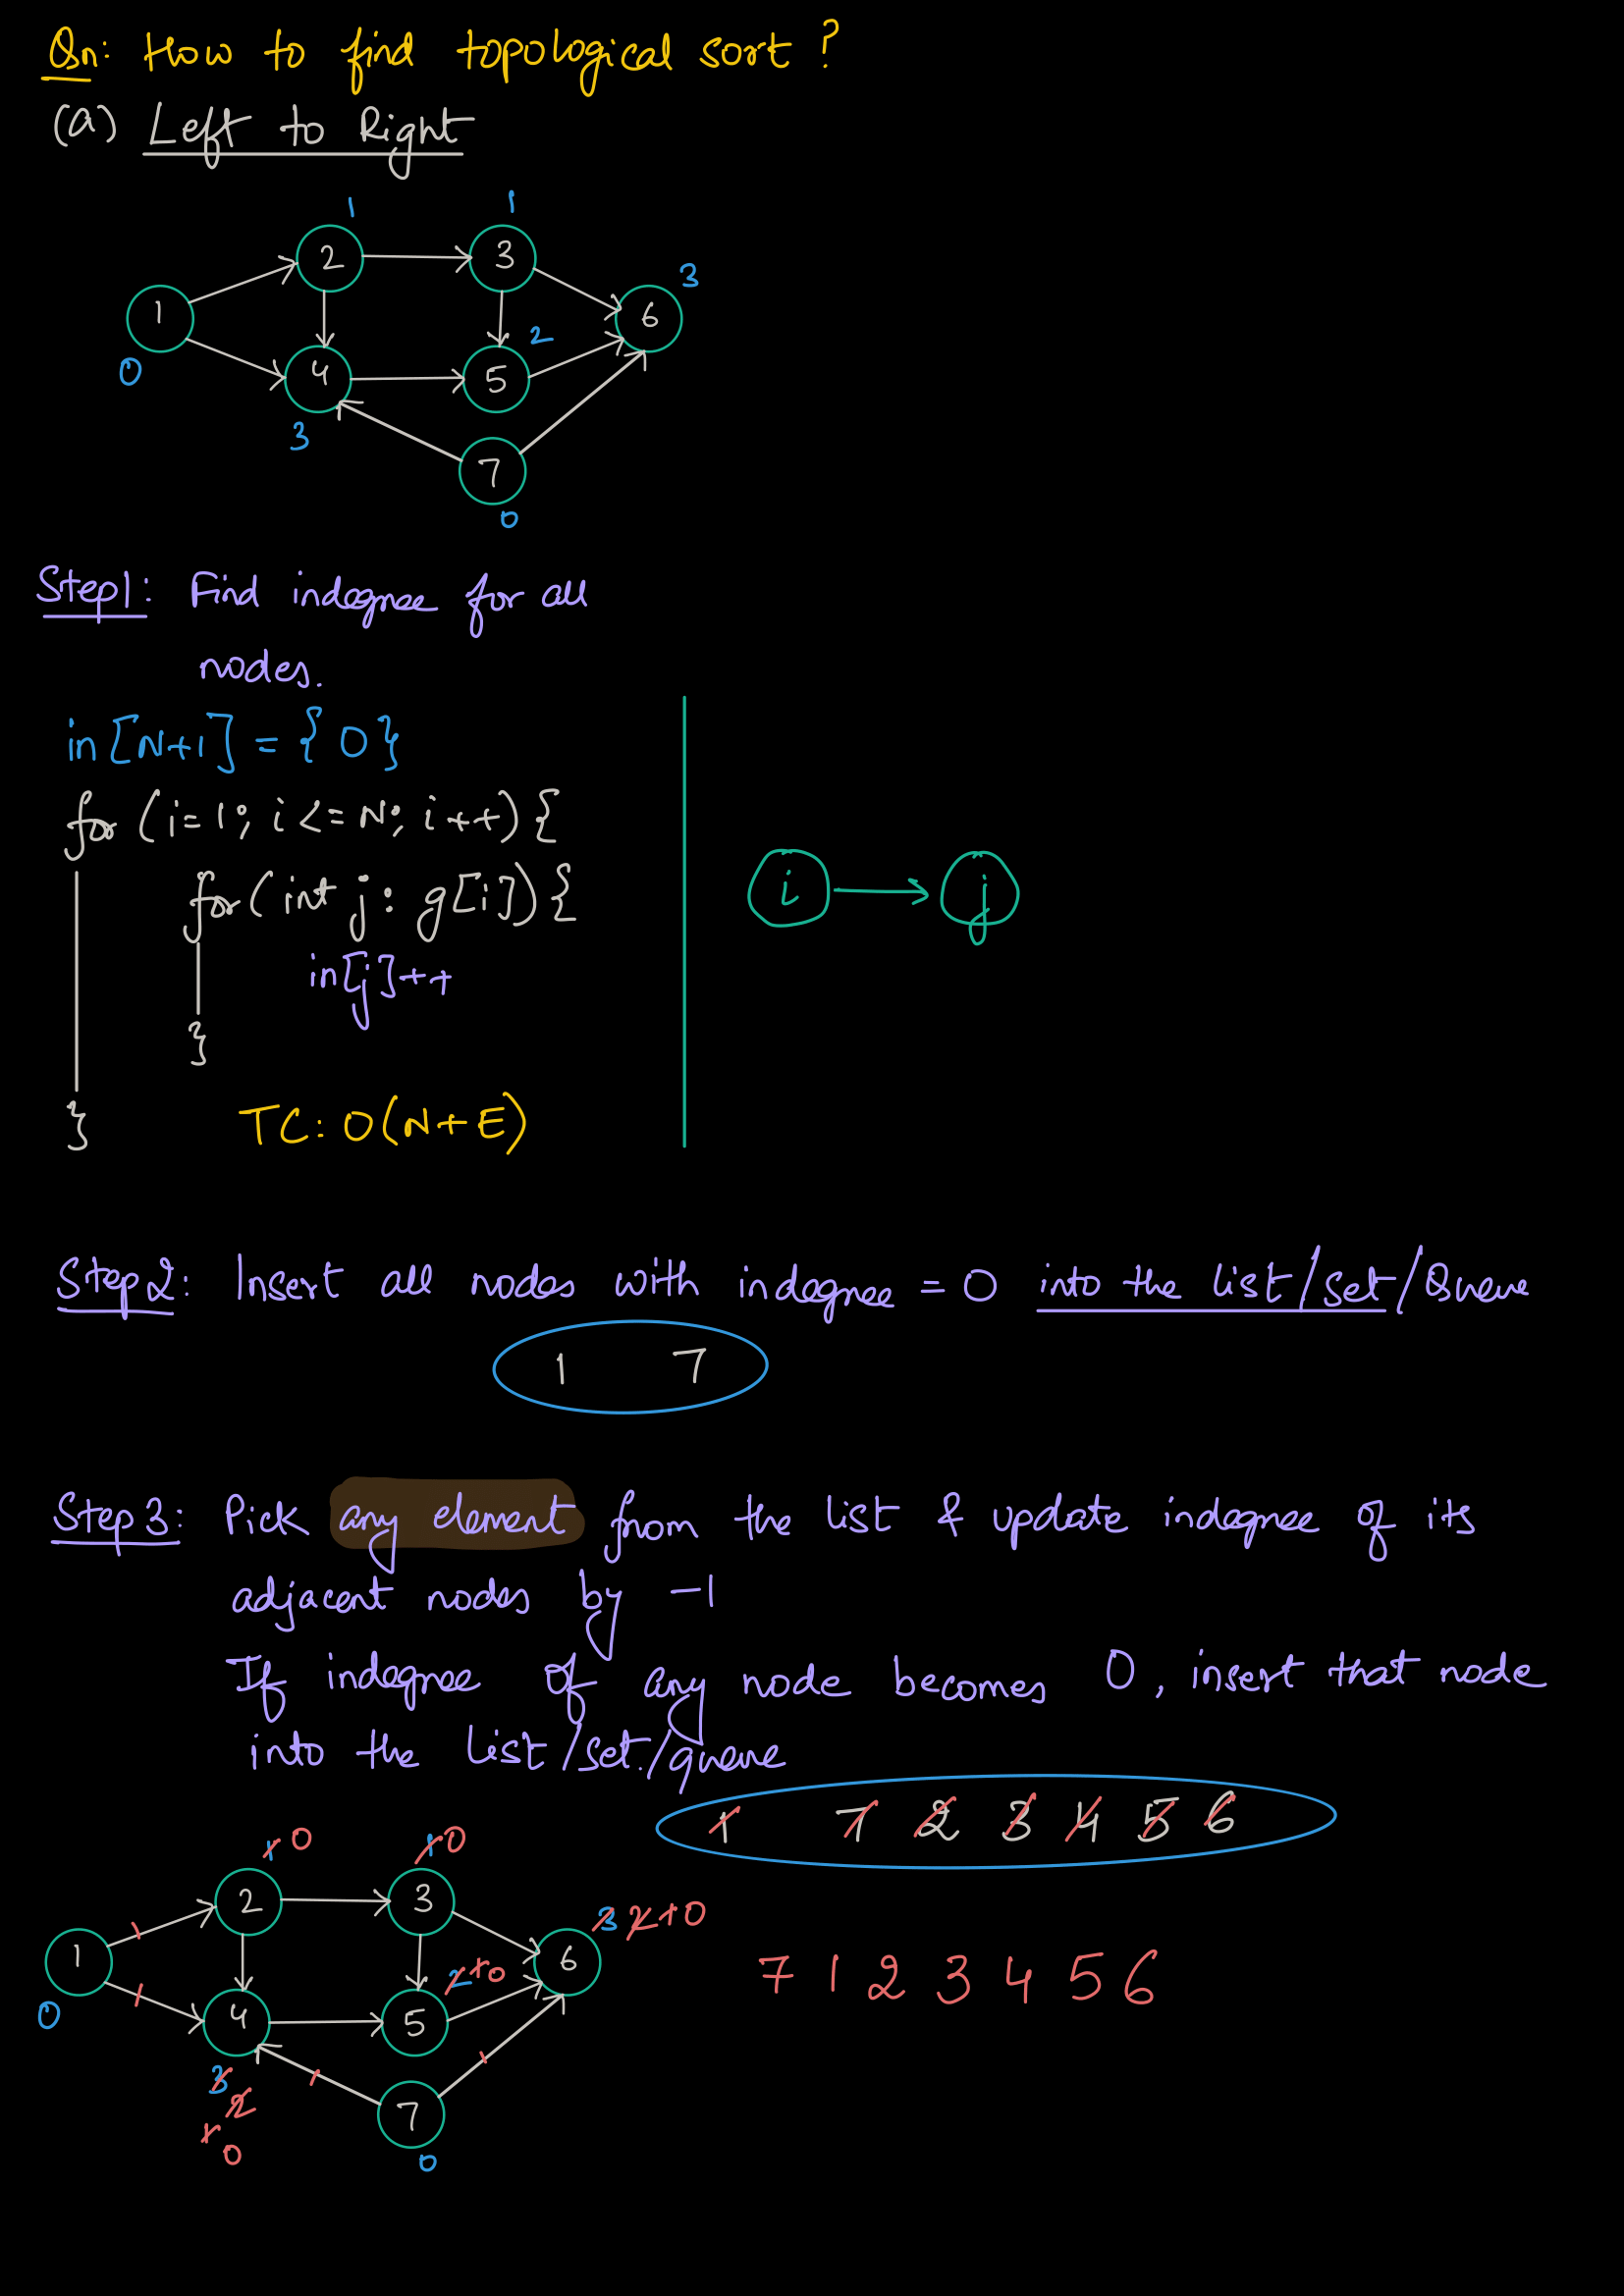 Qn: How to find topological sort ?
(a) Left to Right
1 1
2 3
3
1 6
0 2
4 5
3
7
0
Step1: Find indegree for all
nodes.
in[N+1] = {0}
for (i=1; i<=N; i++){
for(int j: g[i]){
i j
in[j]++
}
} TC: O(N+E)
Step2: Insert all nodes with indegree = 0 into the list/set/Queue
1 7
Step3: Pick any element from the list & update indegree of its
adjacent nodes by -1
If indegree of any node becomes 0, insert that node
into the list/set/queue
1 7 2 3 4 5 6
1 0 1 0
2 3
3 2 1 0
1 6
2 1 0
0 4 5
7 1 2 3 4 5 6
3 2
7
1 0
0